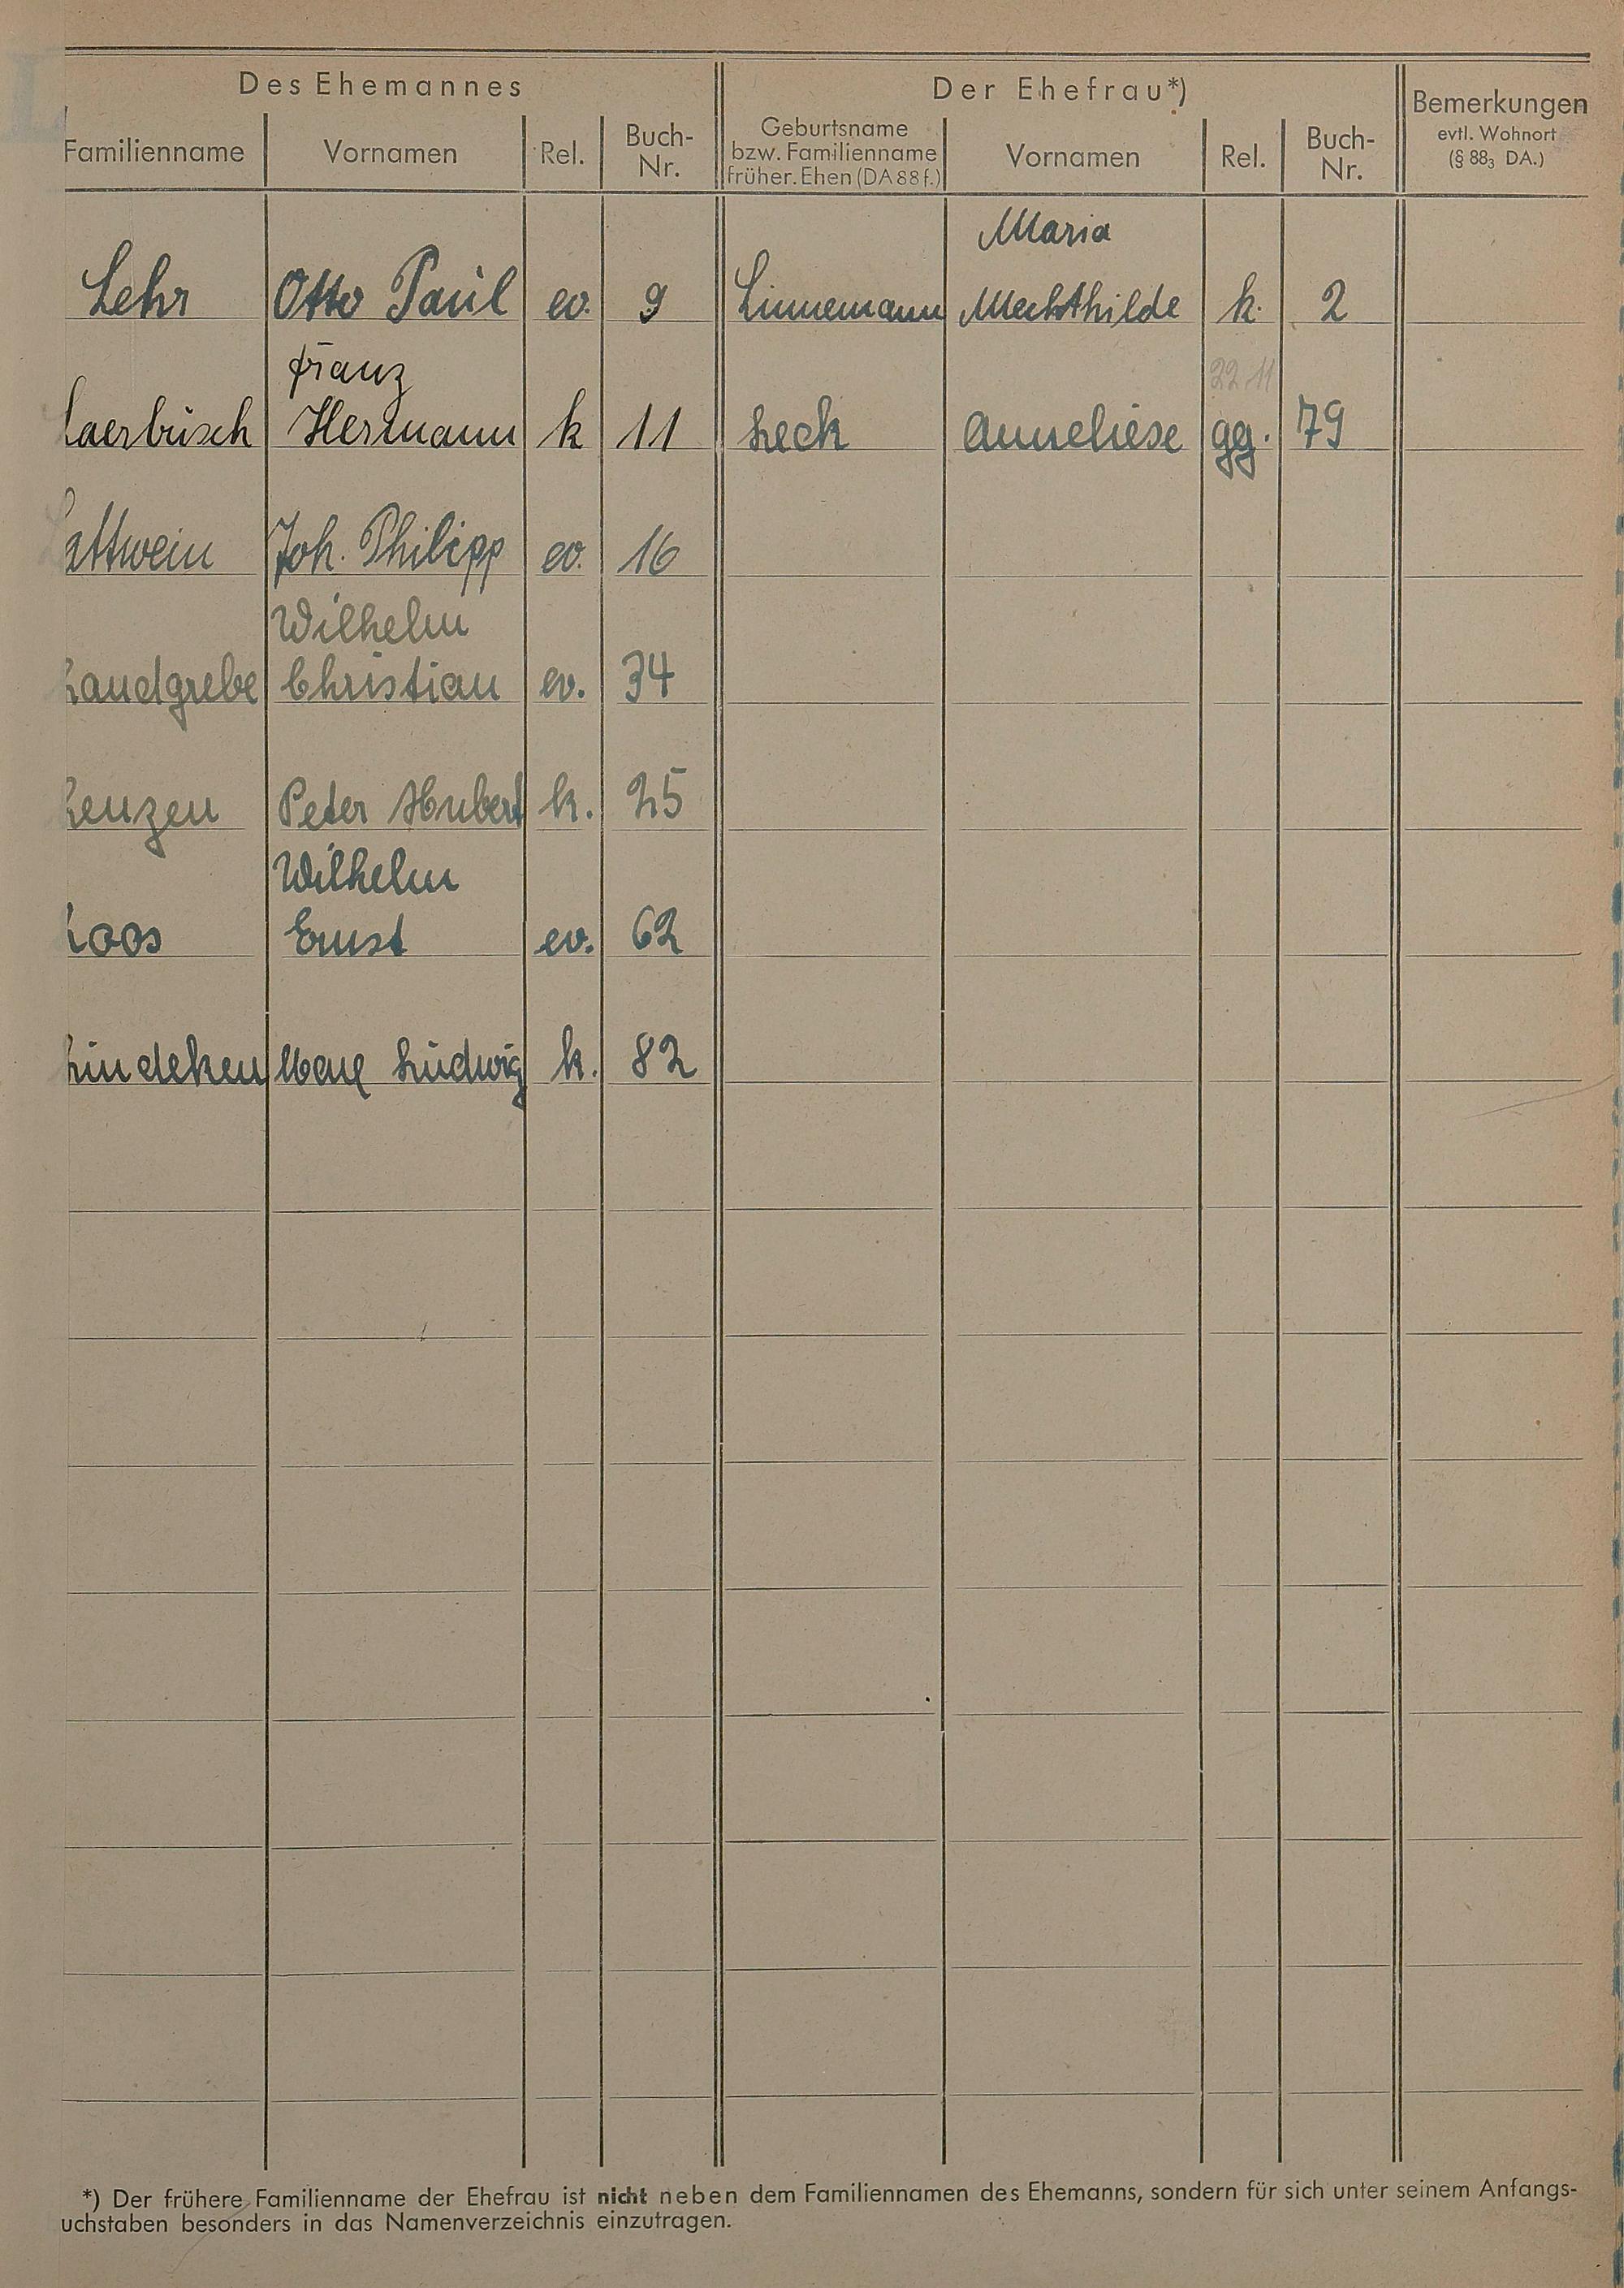 Des Ehemannes Der Ehefrau*) Bemerkungen
evtl. Wohnort
(§ 88₃ DA.)
Familienname Vornamen Rel. Buch-Nr. Geburtsname bzw. Familienname früher. Ehen (DA 88 f.) Vornamen Rel. Buch-Nr.
Maria
Lehr Otto Paul ev. 9 Linnemann Mechthilde k. 2
Franz 22 11
Laerbusch Hermann k 11 Leck Anneliese gg. 79
Lattwein Joh. Philipp ev. 16
Wilhelm
Landgrebe Christian ev. 34
Lenzen Peter Hubert k. 25
Wilhelm
Loos Ernst ev. 62
Lindeken Ludwig k. 82
*) Der frühere Familienname der Ehefrau ist nicht neben dem Familiennamen des Ehemanns, sondern für sich unter seinem Anfangs-
uchstaben besonders in das Namenverzeichnis einzutragen.